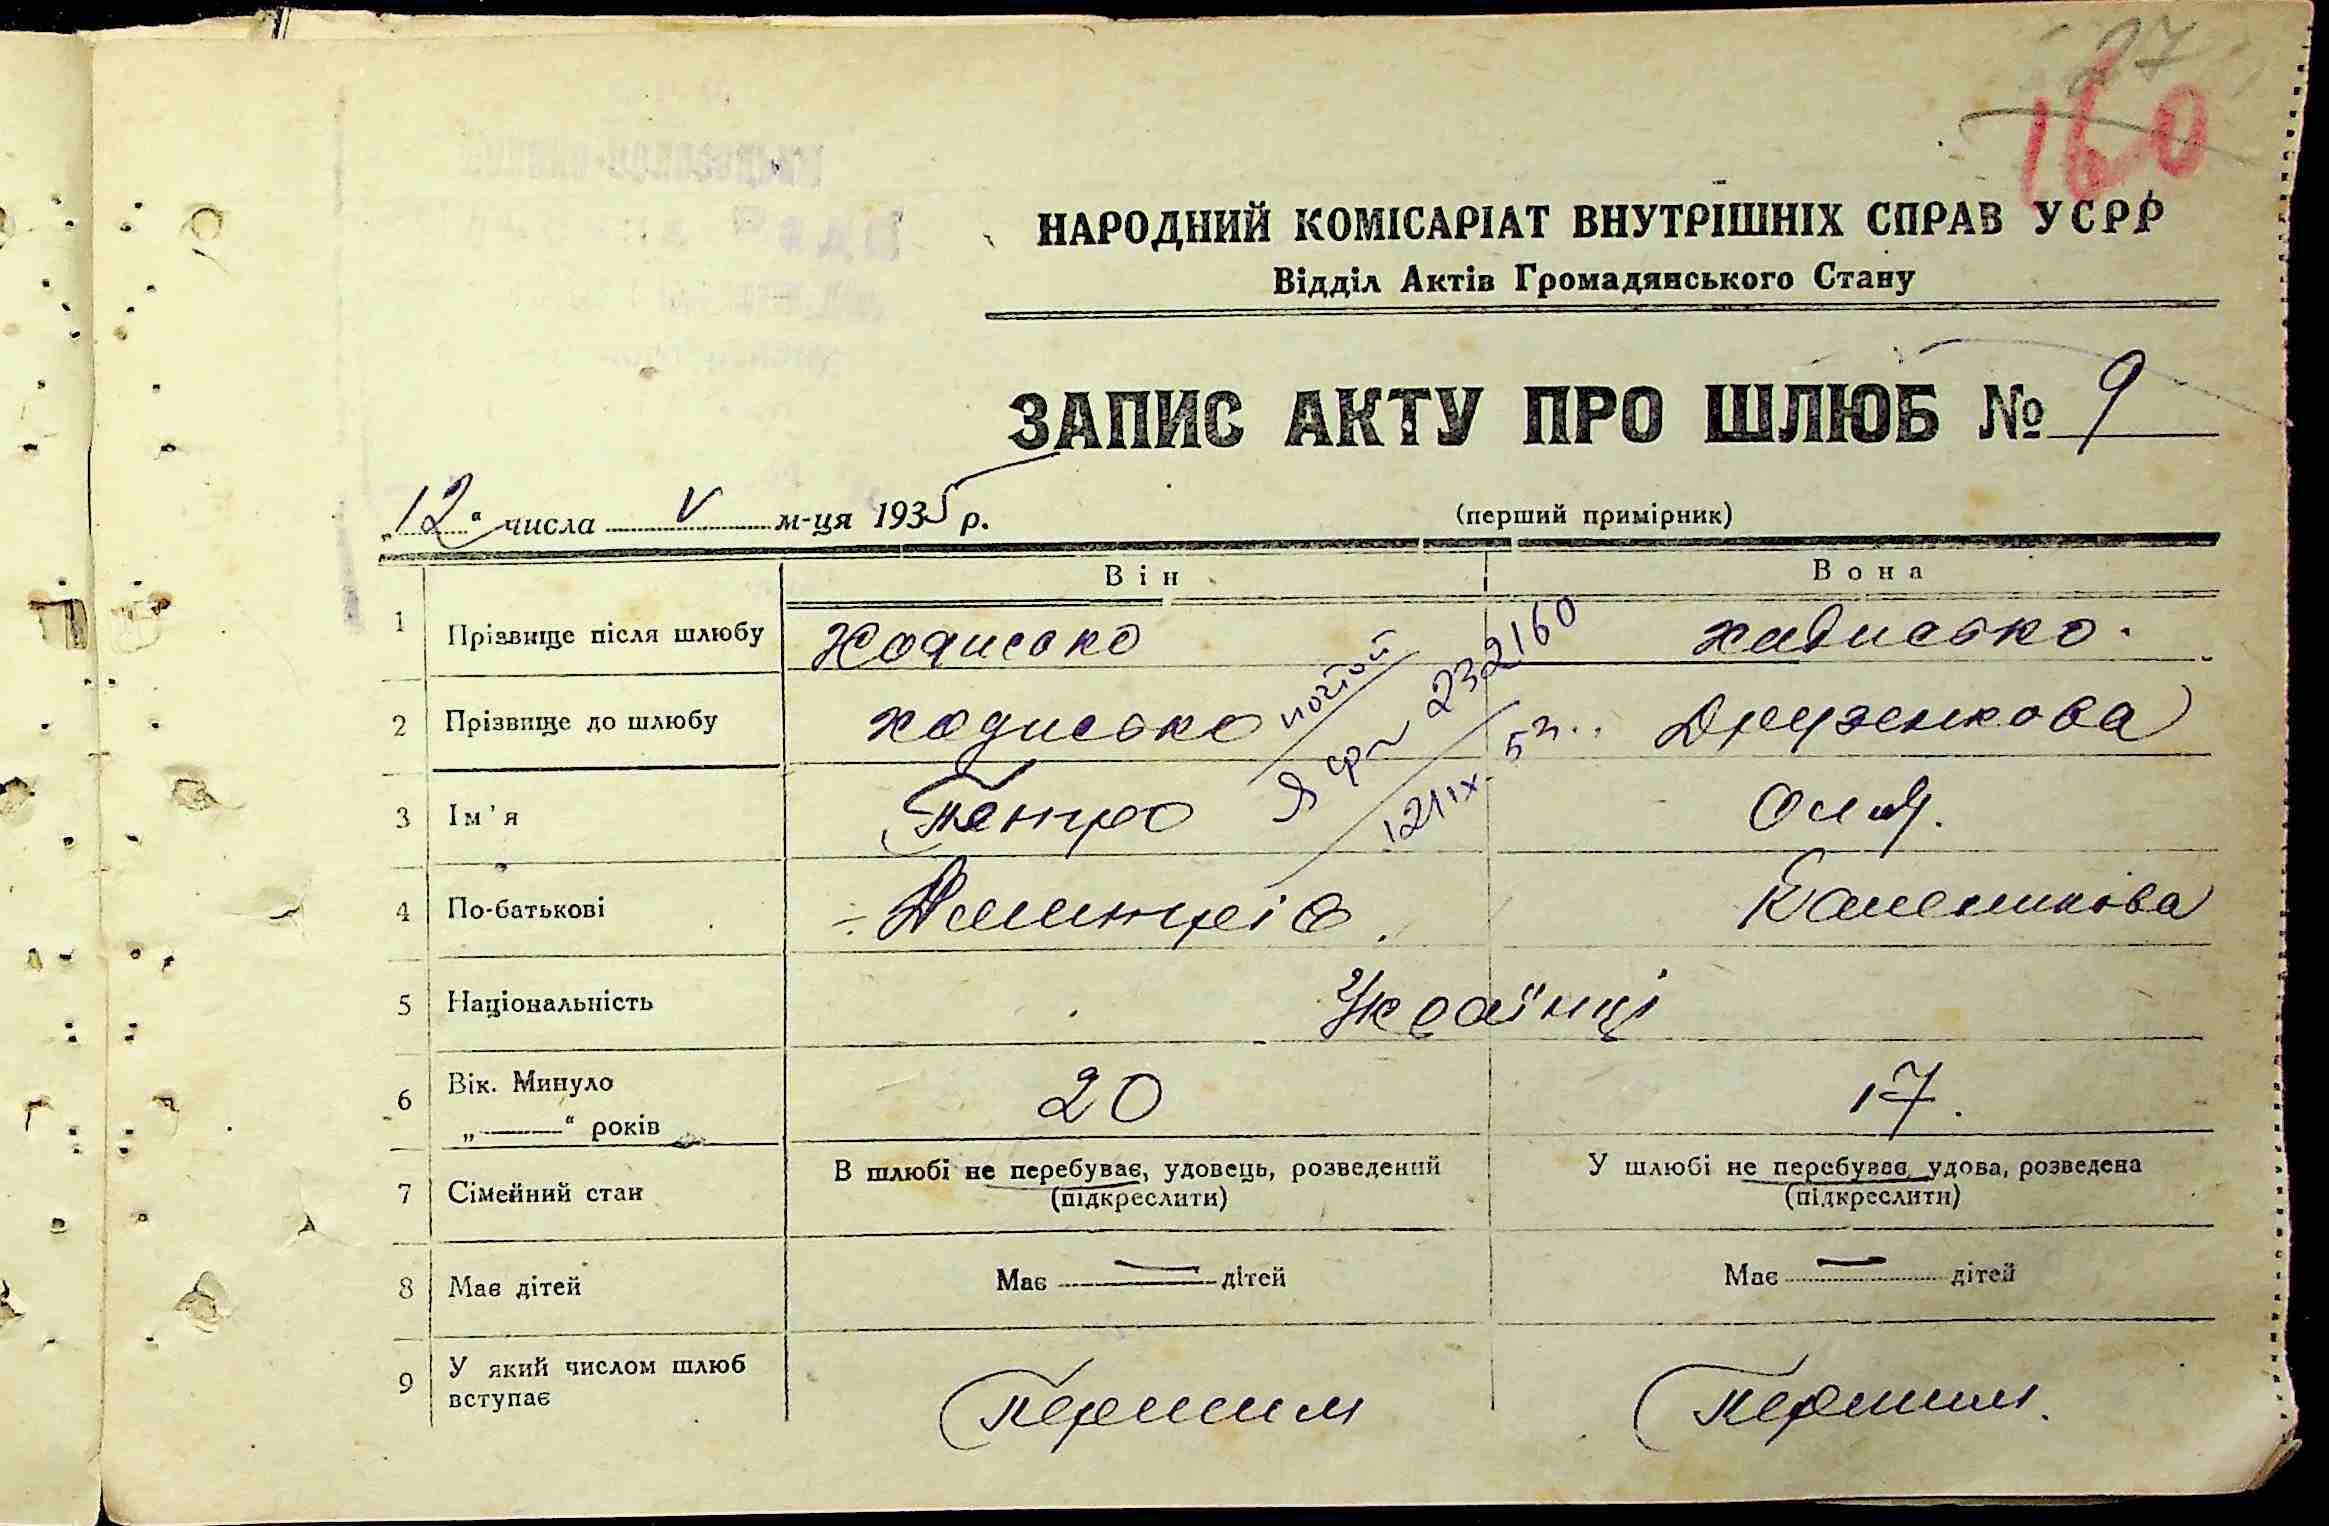 27
160
НАРОДНИЙ КОМІСАРІАТ ВНУТРІШНІХ СПРАВ УСРР
Відділ Актів Громадянського Стану
ЗАПИС АКТУ ПРО ШЛЮБ № 9
„12“ числа V м-ця 1935 р.
(перший примірник)
Він Вона
1 Прізвище після шлюбу Ходисько Ходисько.
2 Прізвище до шлюбу Ходисько Друзенкова
3 Ім'я Петро Оля.
4 По-батькові Дмитрів. Калеников​а
5 Національність Українці
6 Вік. Минуло 20 17.
„——“ років
7 Сімейний стан В шлюбі не перебуває, удовець, розведений У шлюбі не перебуває, удова, розведена
(підкреслити) (підкреслити)
8 Має дітей Має — дітей Має — дітей
9 У який числом шлюб вступає Першим Першим.
232160